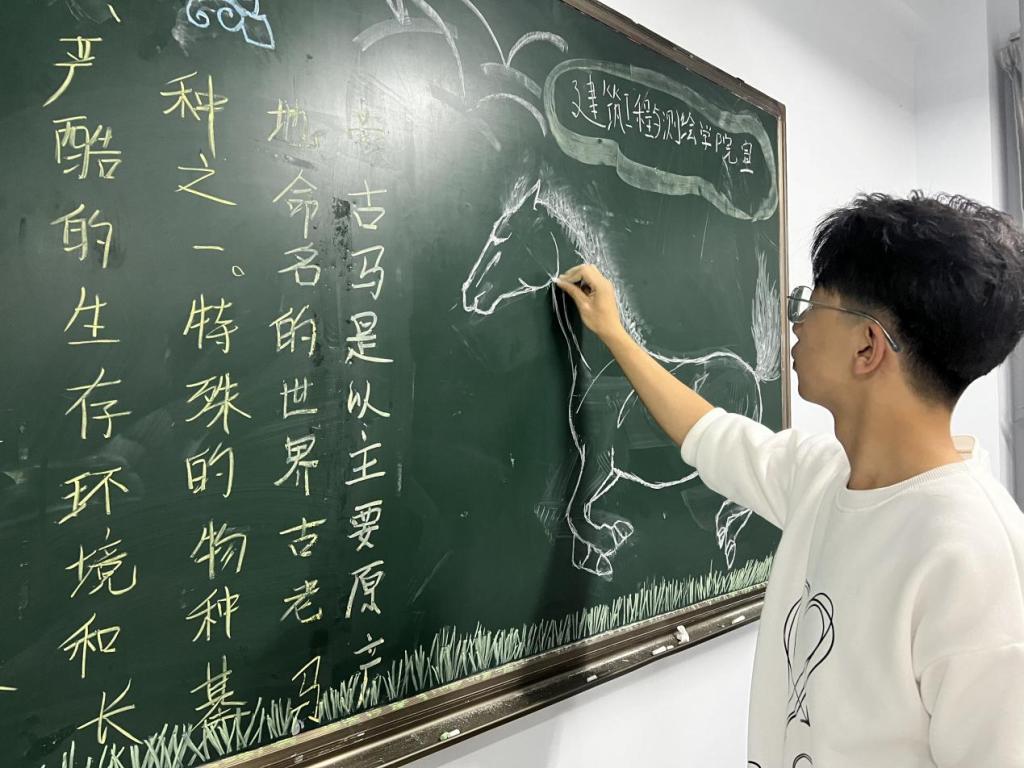 建筑工程与测绘学院宣
蒙古马是以主要原产
地命名的世界古老马
种之一。特殊的物种基
、严酷的生存环境和长